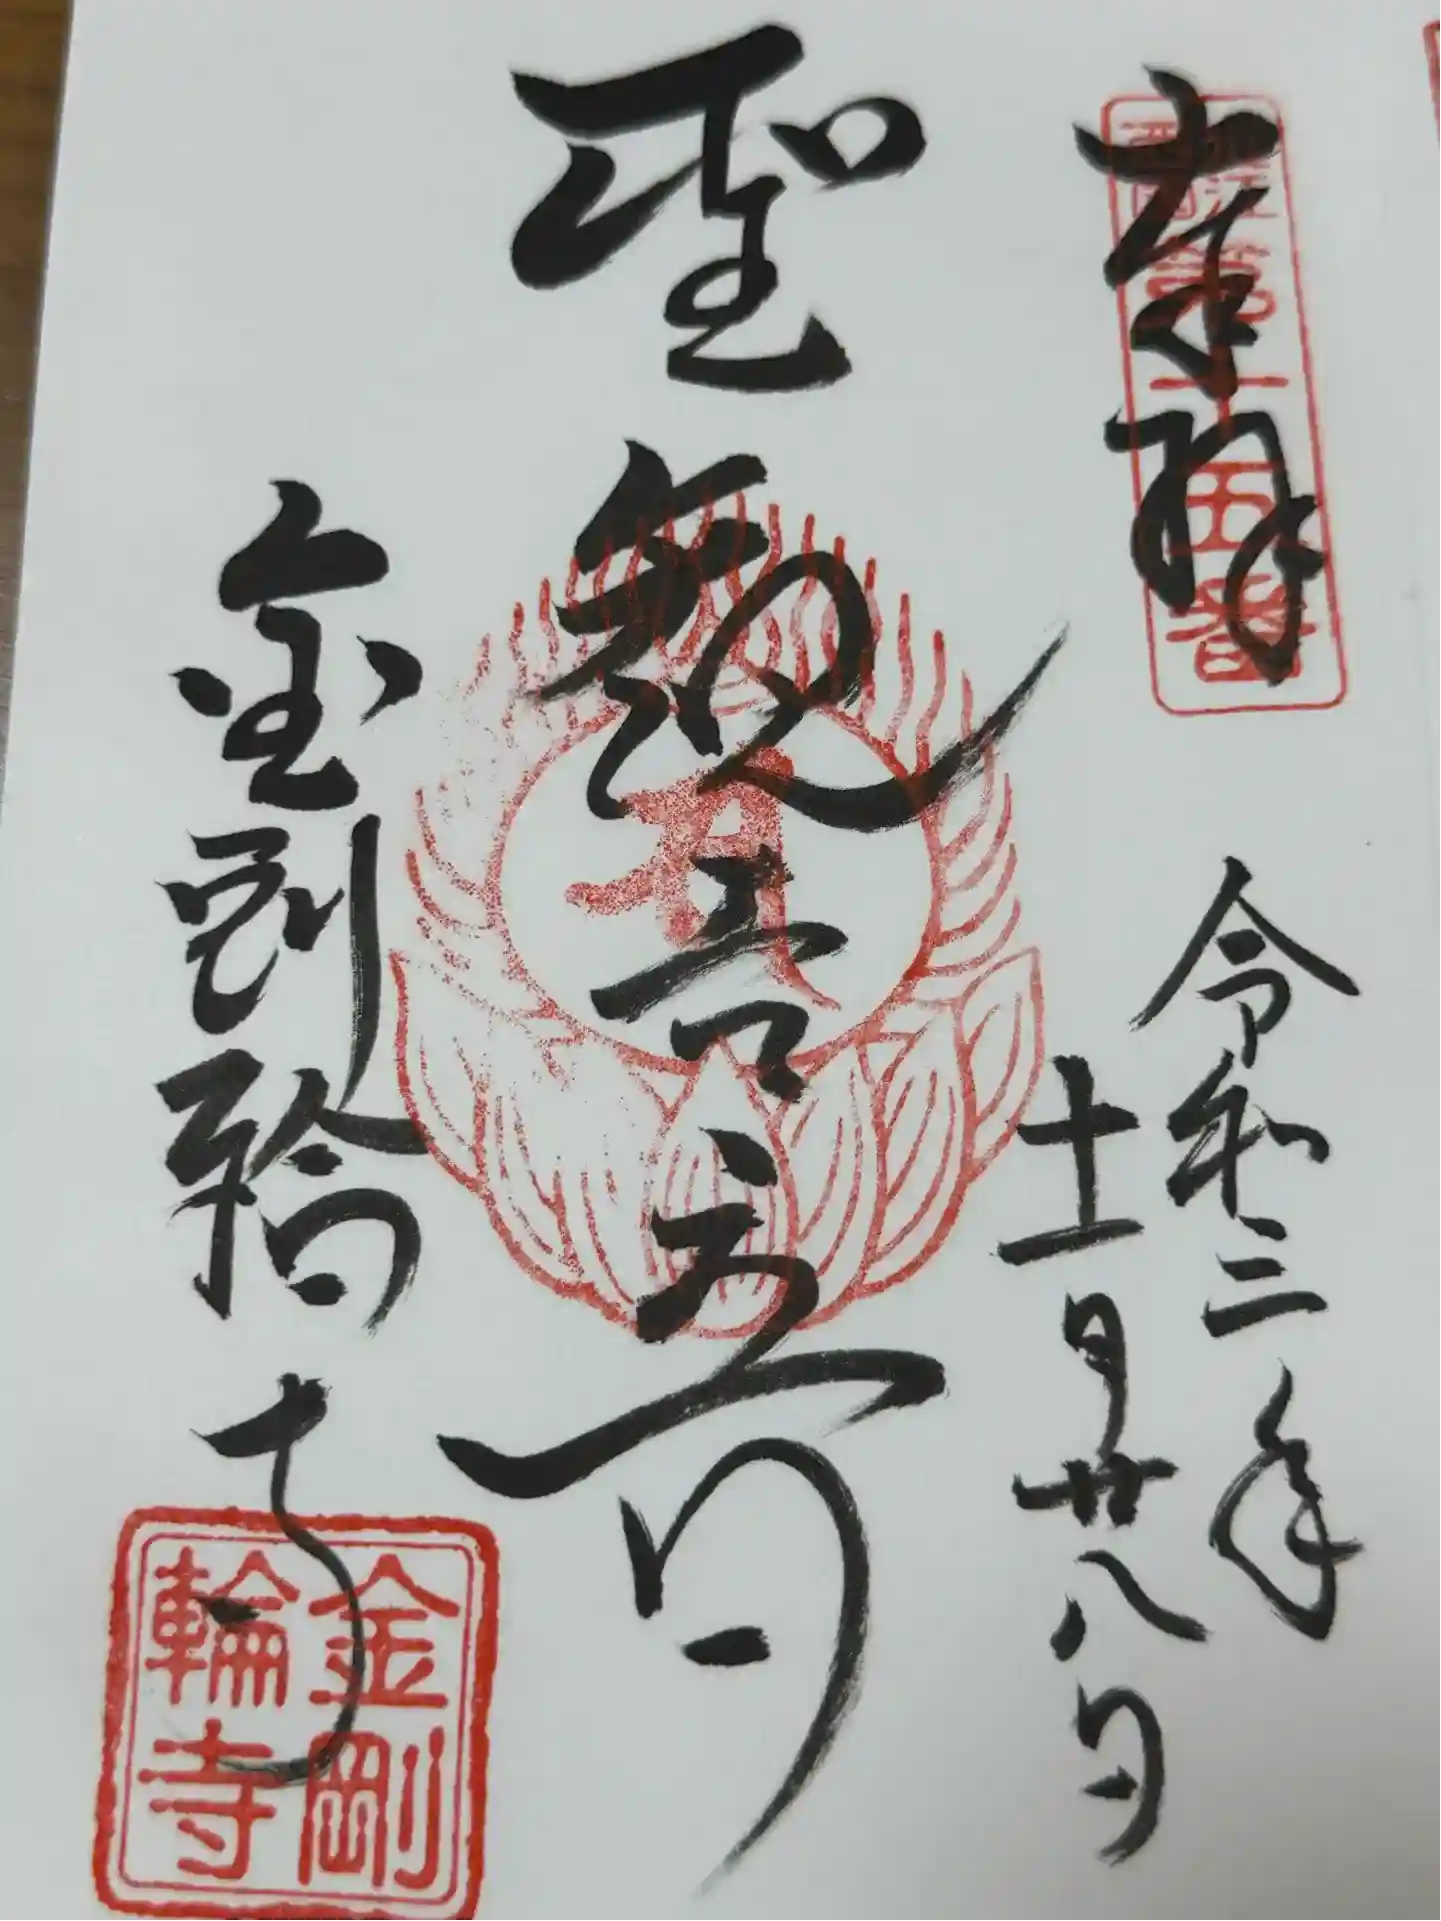 奉拝
近江
西国
第十五番
令和三年
十一月廿八日
聖観音
金剛輪寺
金剛
輪寺